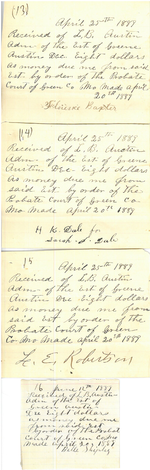 (13)
April 25th 1887
Received of L.D. Austin
Adm. of the Est of Greene
Austin Dec Eight dollars
As money due me from said
Est. by order of the Probate
Court of Green Co Mo Made April
20th 1887
(14)
April 25th 1887
Received of L.D. Austin
Adm. of the Est of Greene
Austin Dec Eight dollars
As money due me from
said Est by order of the
Probate Court of Green Co
Mo Made April 20th 1887
H K Dule for
Sarah A Dule
15
April 25th 1887
Received of L.D. Austin
Adm. of the Est of Greene
Austin Dec Eight dollars
as money due me from
said Est by order of the
Probate Court of Green
Co Mo made April 20th 1887
L. E. Robertson
16 June 18th 1887
Received of L.D. Austin
Adm of the Est of
Green Austin
Dec Eight dollars
as money due me
from said Est
by order of the Probate
Court of Green Co Mo
Made April 20 1887